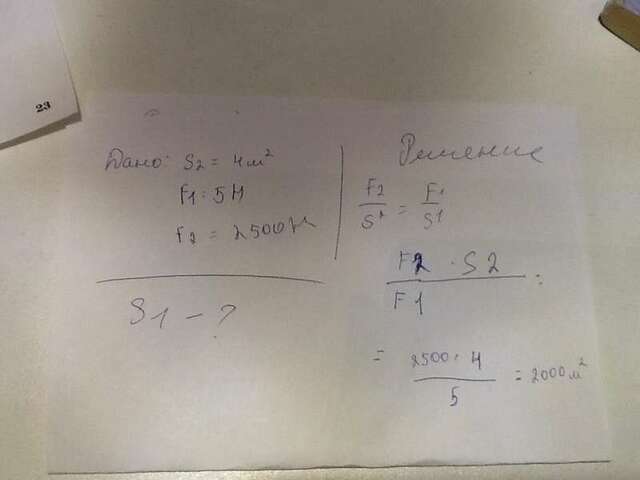 23
Дано: S2 = 4 м²
F1 : 5 Н
F2 = 2500 Н
S1 - ?
Решение
F2/S² = F1/S1
F2 · S2 / F1 =
= 2500 · 4 / 5 = 2000 м²